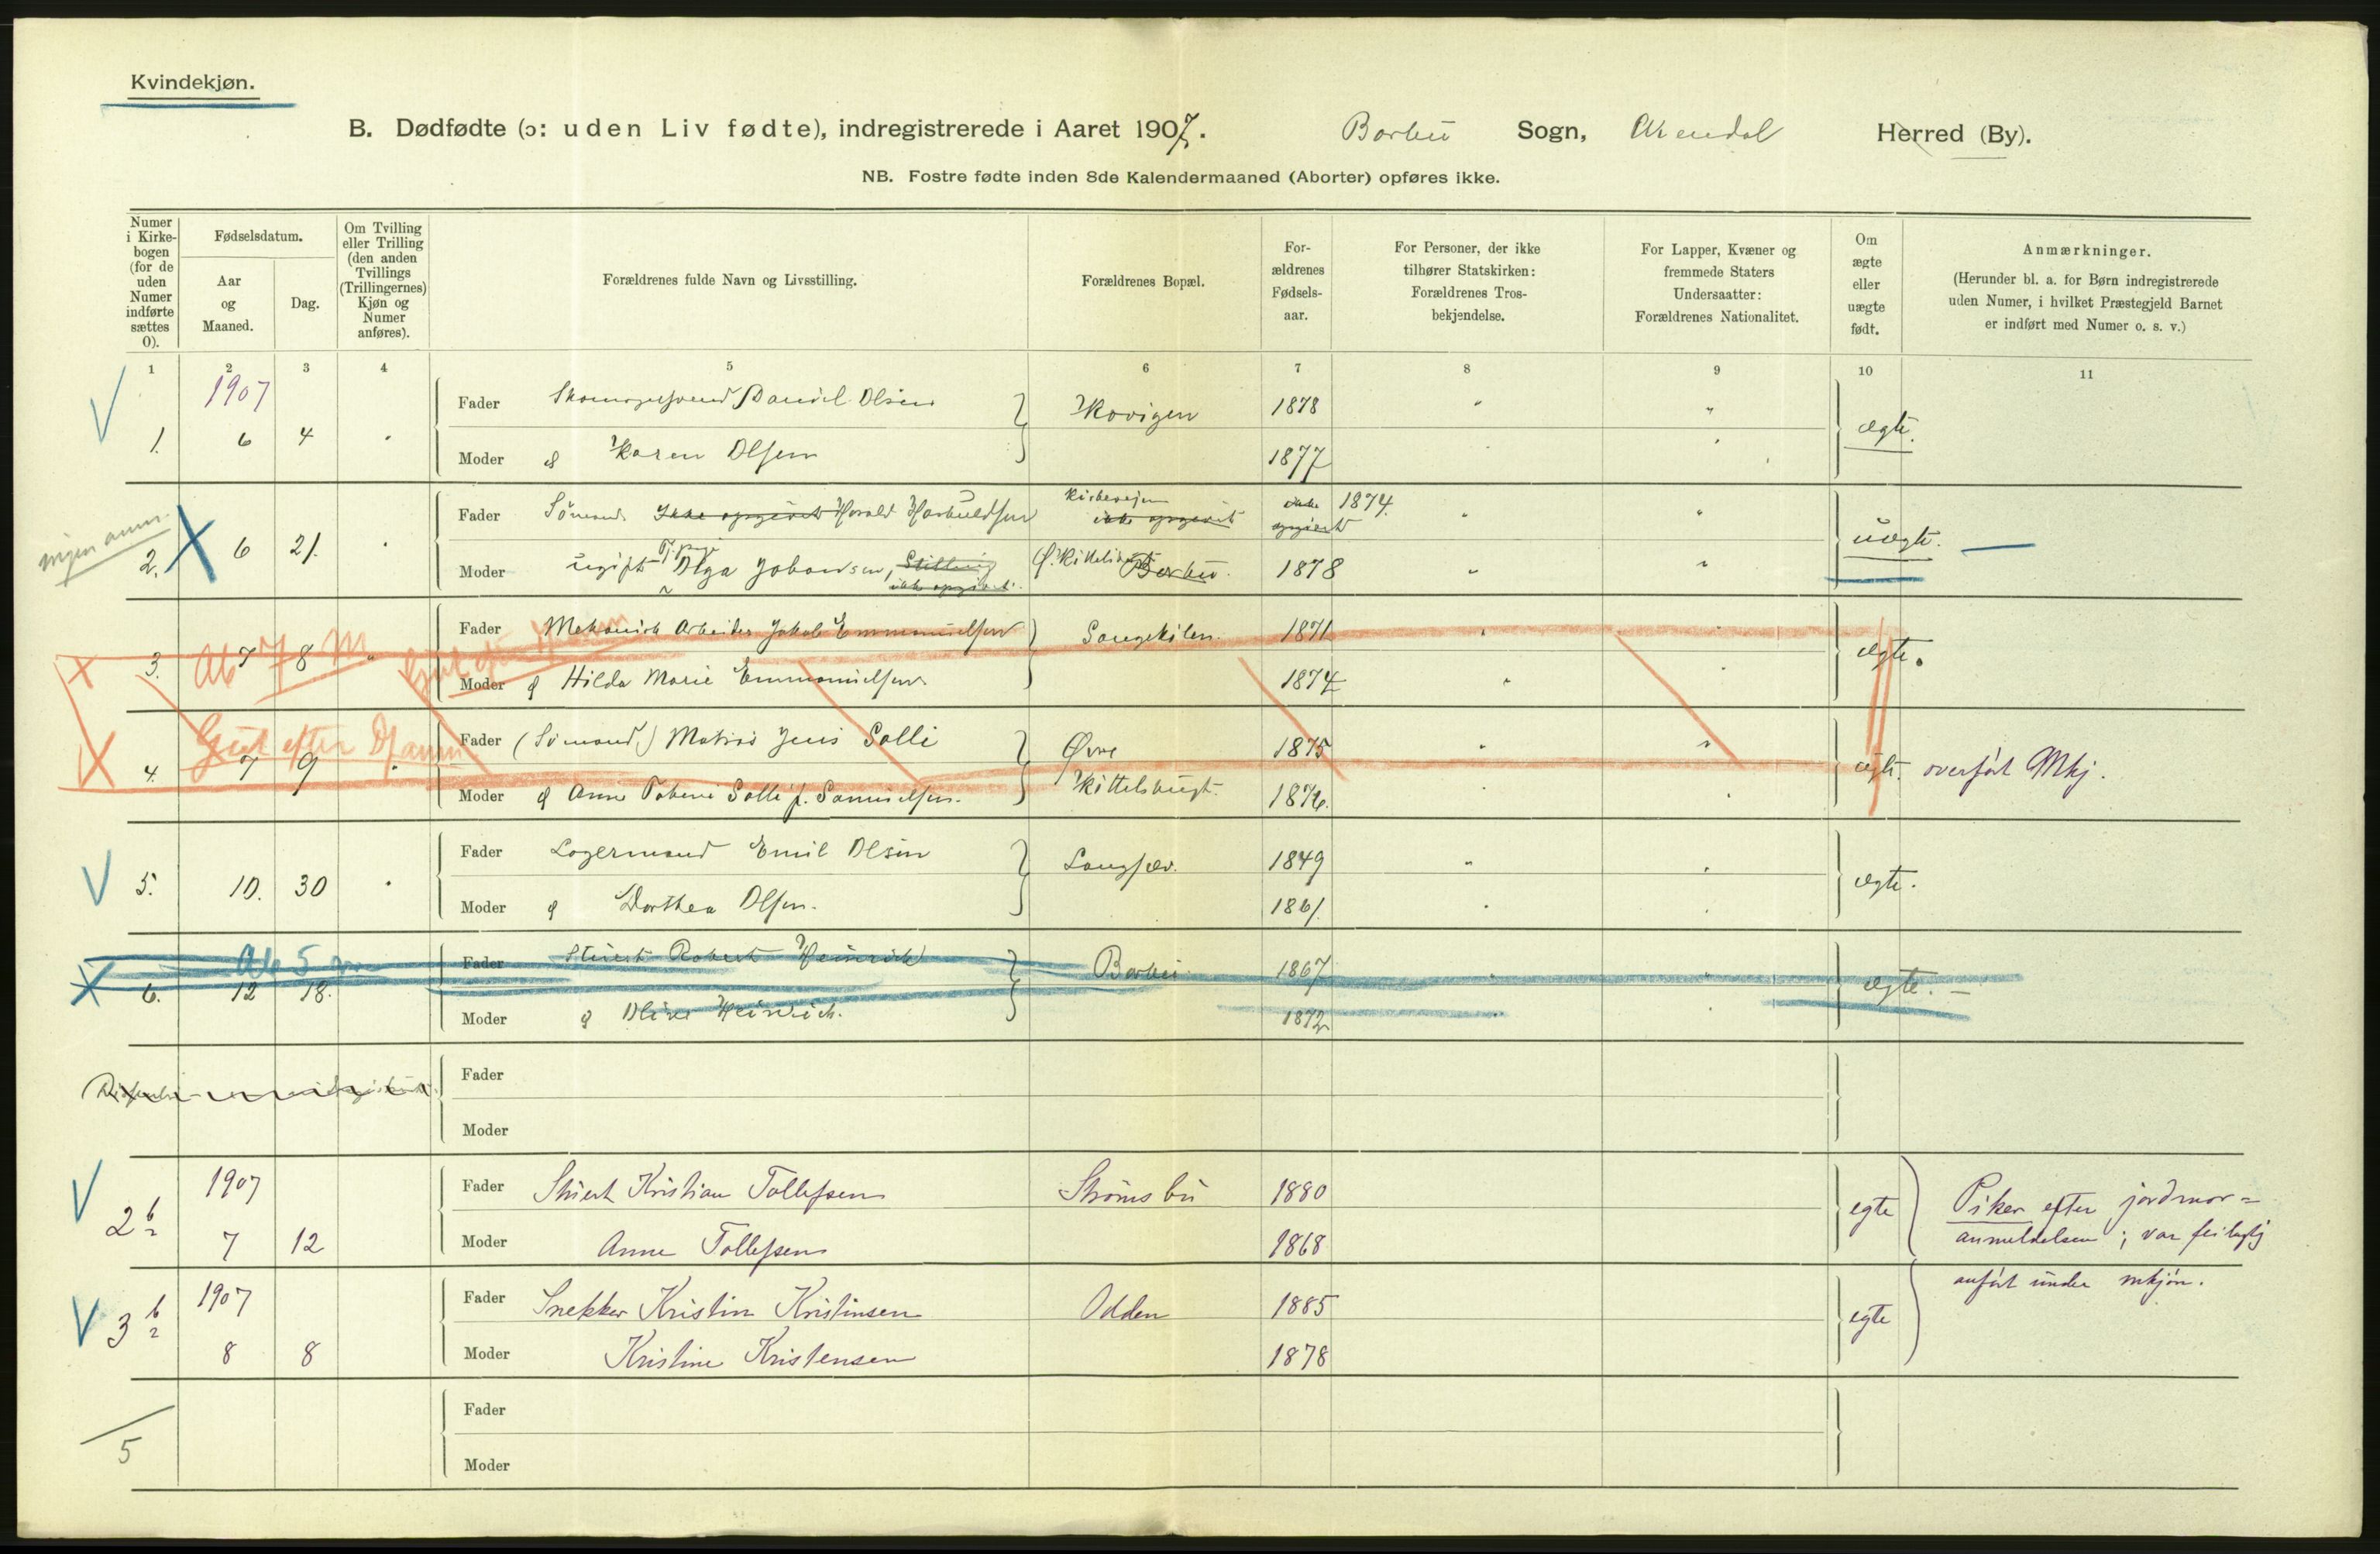 Kvindekjøn.
B. Dødfødte (ɔ: uden Liv fødte), indregistrerede i Aaret 1907. Barbu Sogn, Arendal Herred (By).
NB. Fostre fødte inden 8de Kalendermaaned (Aborter) opføres ikke.
Numer i Kirkebogen (for de uden Numer indførte sættes 0).
Fødselsdatum.
Aar og Maaned.
Dag.
Om Tvilling eller Trilling (den anden Tvillings (Trillingernes) Kjøn og Numer anføres).
Forældrenes fulde Navn og Livsstilling.
Forældrenes Bopæl.
Forældrenes Fødselsaar.
For Personer, der ikke tilhører Statskirken: Forældrenes Trosbekjendelse.
For Lapper, Kvæner og fremmede Staters Undersaatter: Forældrenes Nationalitet.
Om ægte eller uægte født.
Anmærkninger.
(Herunder bl. a. for Børn indregistrerede uden Numer, i hvilket Præstegjeld Barnet er indført med Numer o. s. v.)
1 2 3 4 5 6 7 8 9 10 11
1907
Fader Daniel Olsen Kovigen 1878 " "
1. 6 4 " ægte.
Moder & Karen Olsen 1877 " "
Kirkeveien
Fader Sømand Ikke opgivet Harald ikke opgivet ikke opgivet 1874 " "
ingen anm. 2. 6 21. " uægte. —
Moder ugift Olga Johansen, Stilling ikke opgivet. Barbu. 1878 " "
Fader Mekanisk Arbeider Jakob Emmanuelsen Sangekilen. 1871 " "
3. 7 8 " Ab 7 M ægte.
Moder & Hilda Marie Emmanuelsen 1874 " "
Gut efter
Fader (Sømand) Matros Jens Solli Øvre 1875 " "
4. 7 9 " ægte. overført Mkj.
Moder & Anne Solli f. Samuelsen. Kittelsbugt. 1876. " "
Fader Lagermand Emil Olsen Langsæv. 1849 " "
5. 10. 30 " ægte.
Moder & Dorthea Olsen. 1861. " "
Ab 5 m
Fader Stuert Robert Heinrich Barbu 1867 " "
6. 12 18. ægte. —
Moder & Heinrich. 1872 " "
Fader
Moder
1907
Fader Stuert Kristian Tollefsen Strømsbu 1880
2 b/2 egte Piker efter jordmor=
7 12
Moder Anne Tollefsen 1868
anmeldelsen; var feilagtig
1907
anført under mkjøn.
Fader Snekker Kristin Kristinsen Odden 1885
3 b/2 egte
8 8
Moder Kristine Kristensen 1878
Fader
5
Moder